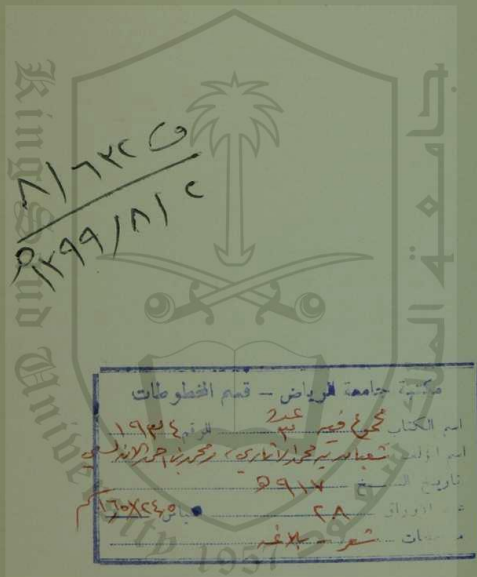 King Saud University
جامعة الملك سعود
1957
ف ٨/٦٣٢
٢/٨/١٣٩٩هـ
مكتبة جامعة الرياض - قسم المخطوطات
اسم الكتاب مجموع فيه عدد ٣ الرقم ١٩٣٤
اسم المؤلف شعبان بن محمد الآثاري، ومحمد بن احمد الاندلسي
تاريخ النسخ ٩١٧هـ
عدد الاوراق ٢٨
شعر - بلاغة